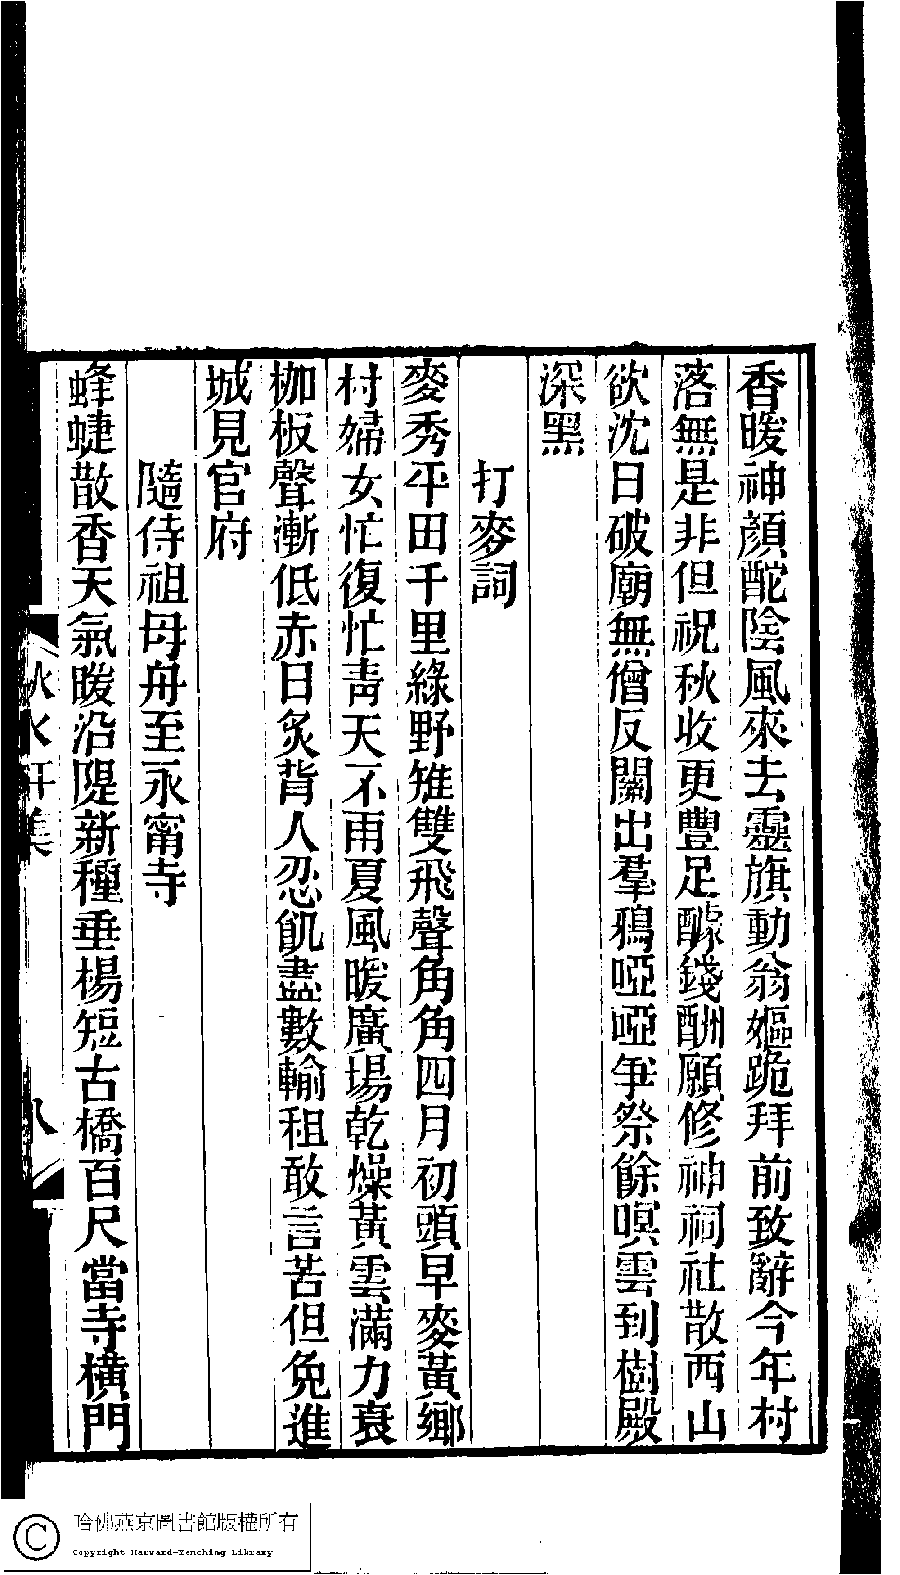 香暖神顏酡陰風來去靈旗動翁嫗跪拜前致辭今年村
落無是非但祝秋收更豐足醵錢酬願修神祠社散西山
欲沈日破廟無僧反關出羣鴉啞啞爭祭餘暝雲到樹殿
深黑
打麥詞
麥秀平田千里綠野雉雙飛聲角角四月初頭早麥黃鄉
村婦女忙復忙靑天不雨夏風暖廣場乾燥黃雲滿力衰
枷板聲漸低赤日炙背人忍飢盡數輸租敢言苦但免進
城見官府
隨侍祖母舟至永甯寺
蜂蜨散香天氣暖沿隄新種垂楊短古橋百尺當寺橫門
秋水軒集
八
哈佛燕京圖書館版權所有
Copyright Harvard-Yenching Library